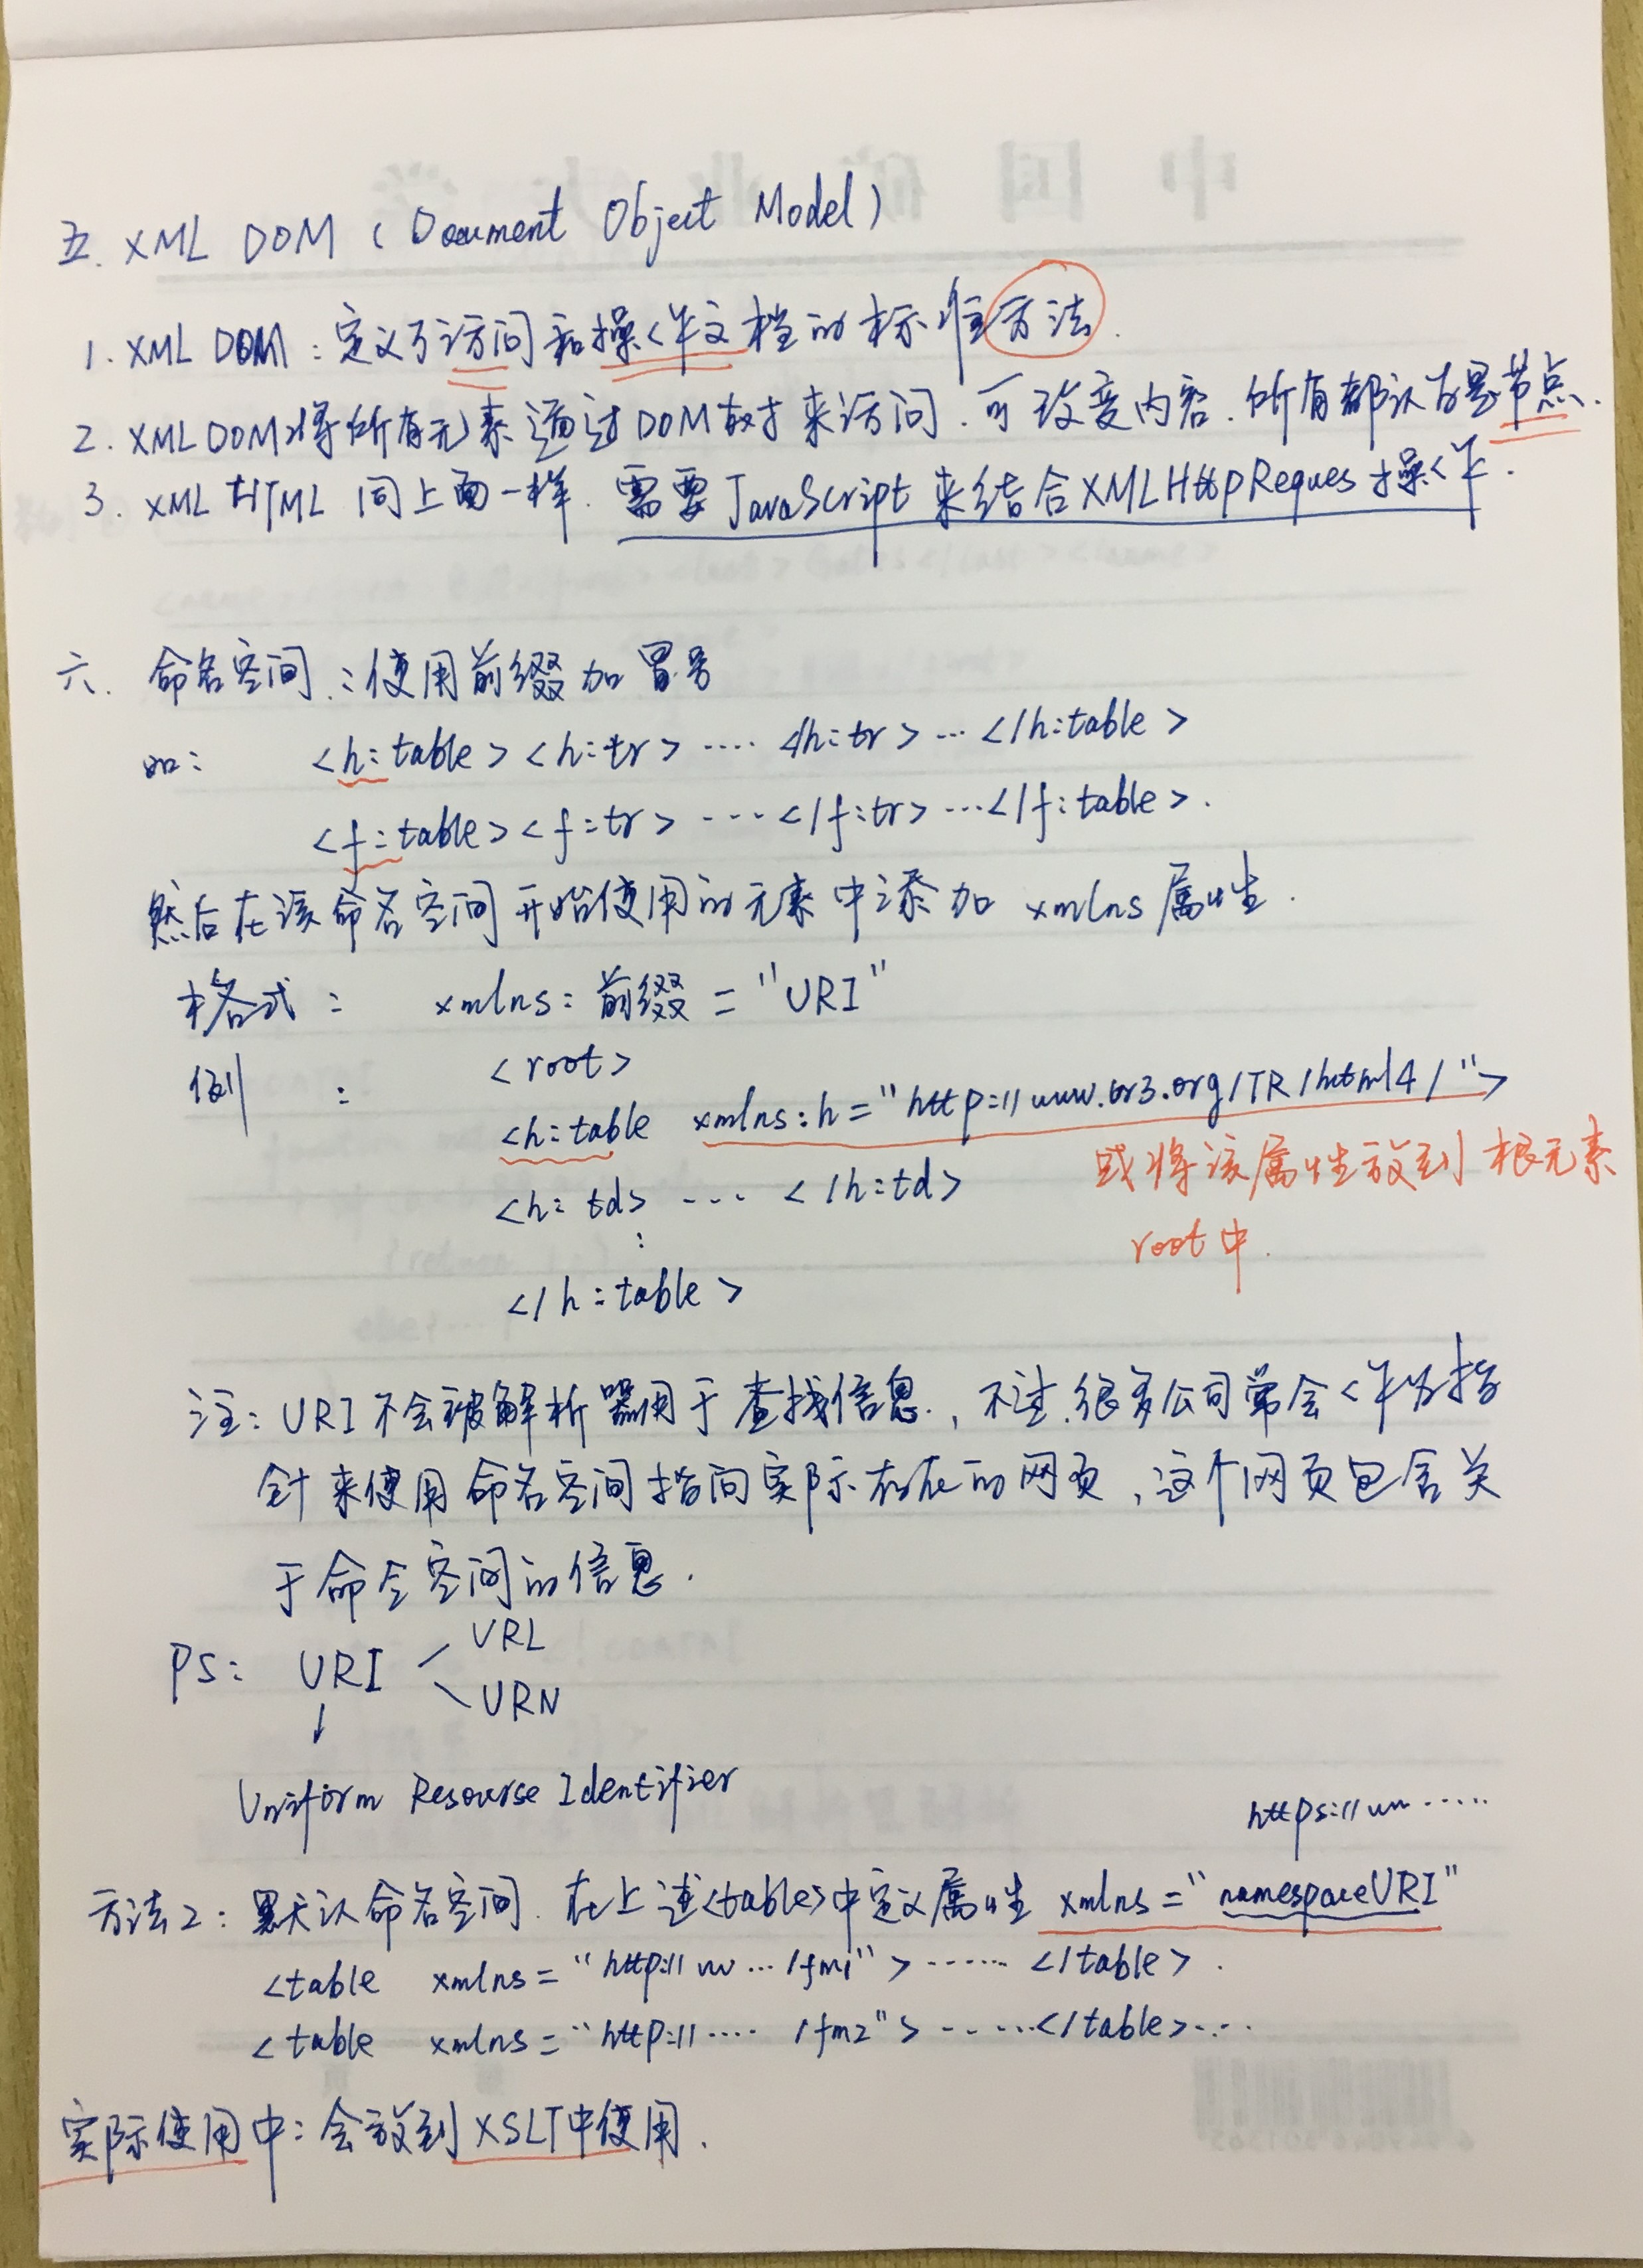 五. XML DOM (Document Object Model)
1. XML DOM：定义了访问和操作文档的标准方法.
2. XML DOM将所有元素通过DOM树来访问.可改变内容.所有都认为是节点.
3. XML HTML 同上面一样.需要JavaScript来结合XMLHttpRequest操作.
六. 命名空间：使用前缀加冒号
如： <h:table><h:tr>....</h:tr>...</h:table>
<f:table><f:tr>....</f:tr>...</f:table>.
然后在该命名空间开始使用的元素中添加 xmlns属性.
格式： xmlns:前缀="URI"
例： <root>
<h:table xmlns:h="http://www.w3.org/TR/html4/">
或将该属性放到根元素
<h:td>....</h:td>
root中.
⋮
</h:table>
注：URI不会被解析器用于查找信息.，不过.很多公司常会作为指
针来使用命名空间指向实际存在的网页，这个网页包含关
于命名空间的信息.
PS： URI URL
URN
↓
Uniform Resourse Identifier
https://ww.....
方法2：默认命名空间.在上述<table>中定义属性 xmlns="namespaceURI"
<table xmlns="http://ww.../fm1">......</table>.
<table xmlns="http://..../fm2">......</table>....
实际使用中：会放到XSLT中使用.